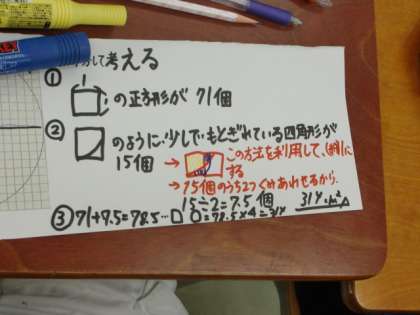 して考える
①
1
1
の正方形が 71個
②
のように少しでもとぎれている四角形が
15個
→ この方法を利用して、1(個)に
する
→ 15個のうち2つくみあわせるから
15÷2=7.5 個
③ 71+7.5=78.5…
=78.5×4=314
314cm²